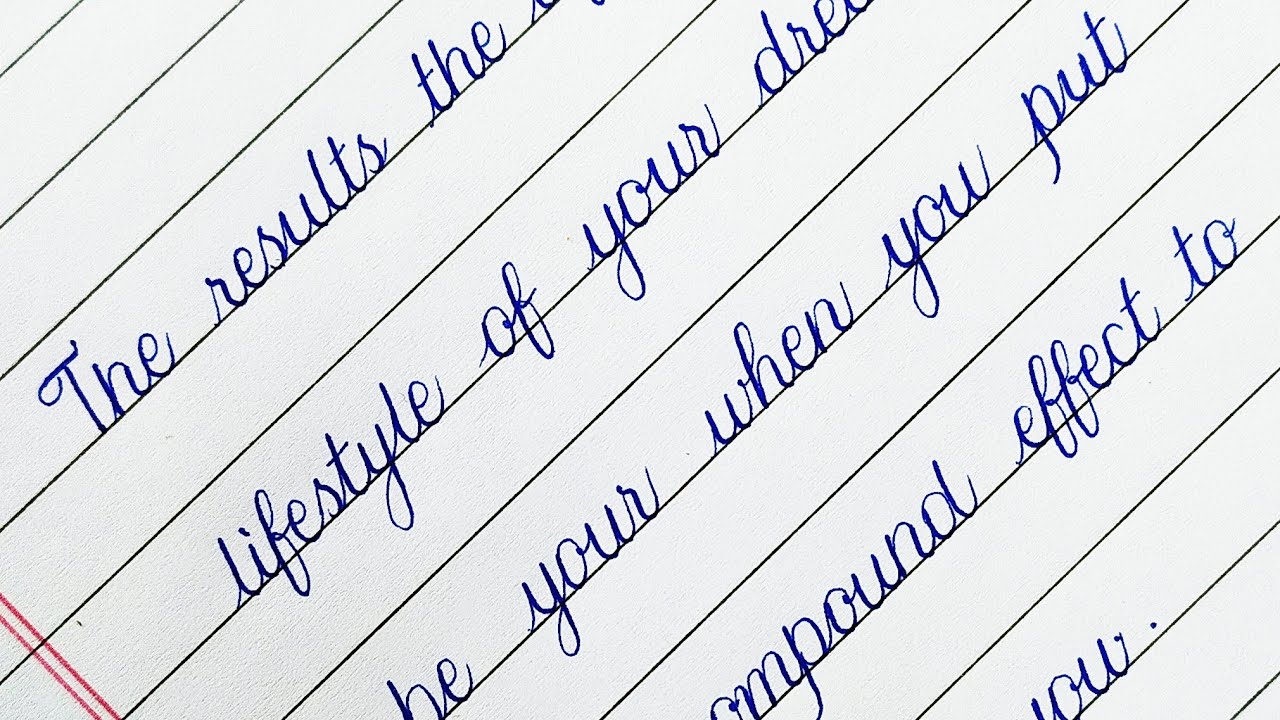 The results the
lifestyle of your
be your when you put
effect to